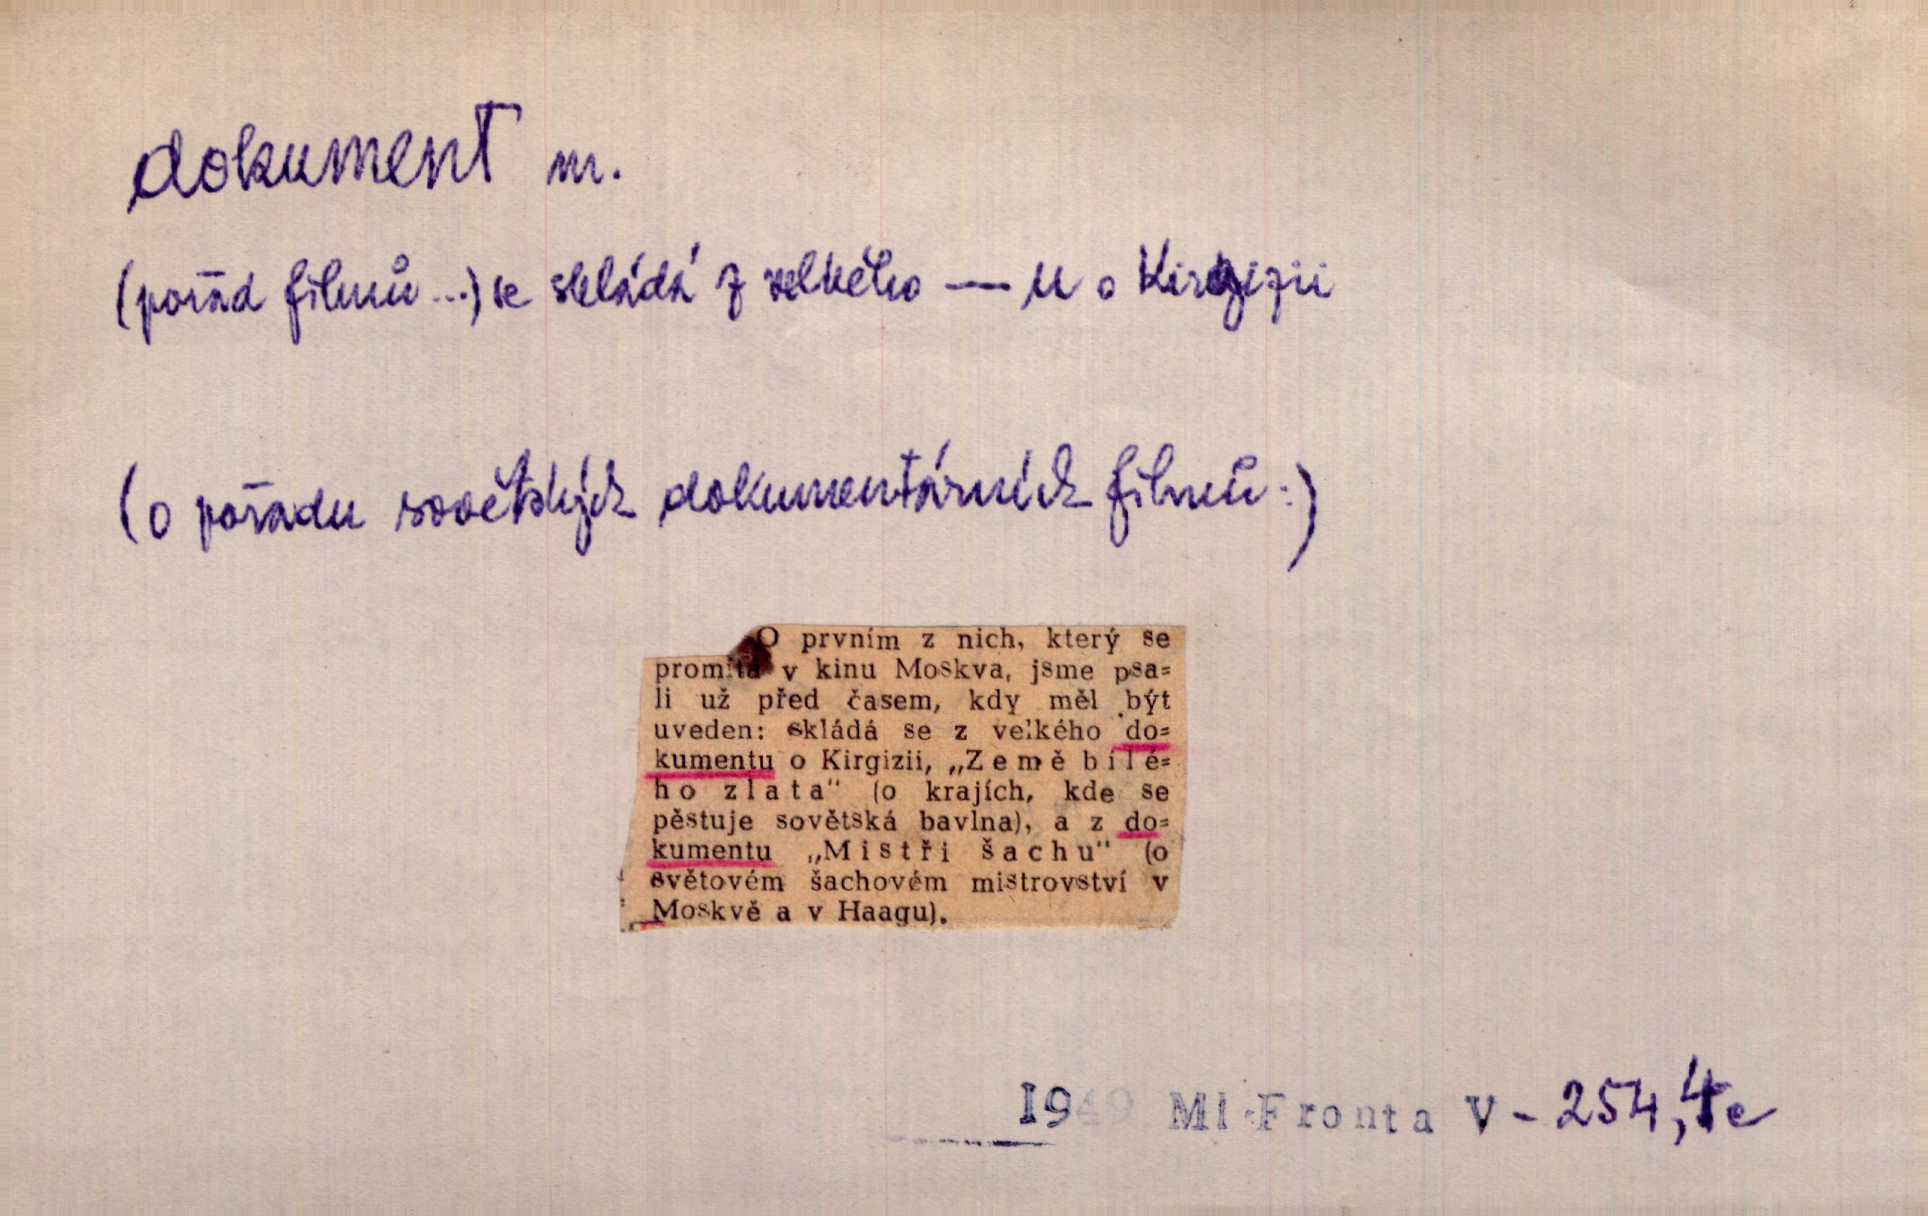 dokument m.
(pořad filmů...) se skládá z velkého — u o Kirgizii
(o pořadu sovětských dokumentárních filmů:)
O prvním z nich, který se
promítá v kinu Moskva, jsme psa=
li už před časem, kdy měl být
uveden: skládá se z velkého do=
kumentu o Kirgizii, „Země bílé=
ho zlata" (o krajích, kde se
pěstuje sovětská bavlna), a z do=
kumentu „Mistři šachu" (o
světovém šachovém mistrovství v
Moskvě a v Haagu).
1949 Ml. Fronta V - 254, 4e